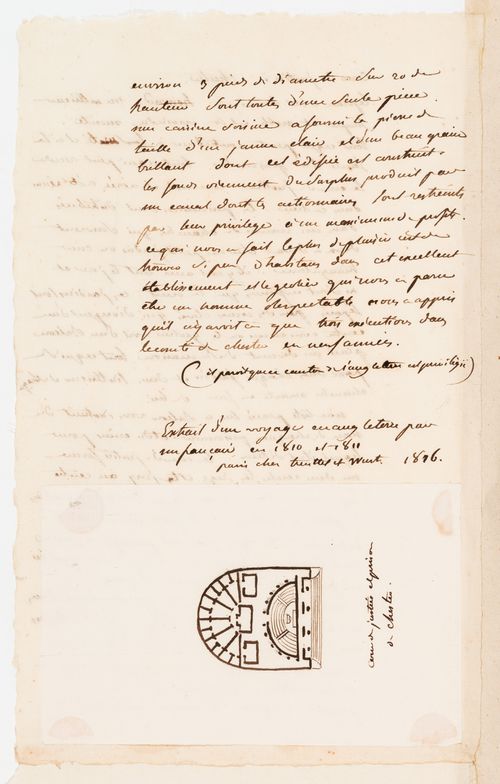 environ 3 pieds de diametre sur 20 de
hauteur sont toutes d'une seule piece.
une carriere voisine a fourni la pierre de
taille d'un jaune clair et d'un beau grain
brillant dont cet edifice est construit.
les fonds viennent du surplus produit par
un canal dont les actionnaires sont restreints
par leur privilege à un maximum de profit.
ce qui nous a fait le plus de plaisir c'est de
trouver si peu d'habitans dans cet excellent
établissement et le geolier qui nous a paru
être un homme respectable nous a appris
qu'il n'y avoit eu que trois executions dans
le comté de chester en neuf années.
(il paroit que ce canton de l'angleterre est privilégié)
Extrait d'un voyage en angleterre par
un français en 1810 et 1811
paris chez treuttel et Wurt. 1816.
cour de justice et prison
de chester.